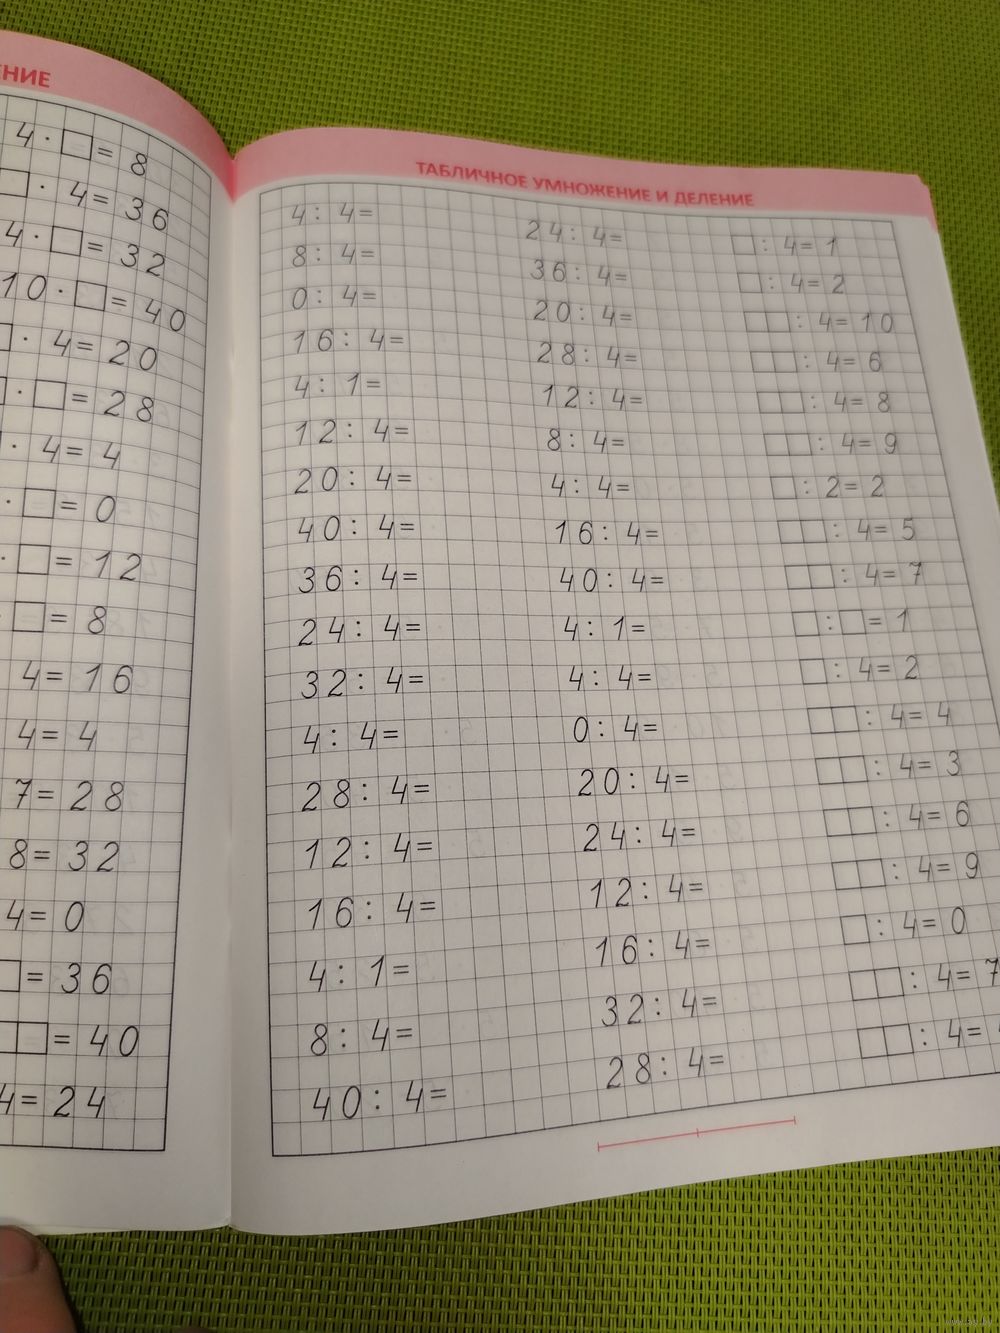 ЕНИЕ
4 · □ = 8
□ · 4 = 36
4 · □ = 32
10 · □ = 40
□ · 4 = 20
□ · □ = 28
· 4 = 4
· □ = 0
· □ = 12
· □ = 8
4 = 16
4 = 4
7 = 28
8 = 32
4 = 0
□ = 36
□□ = 40
4 = 24
ТАБЛИЧНОЕ УМНОЖЕНИЕ И ДЕЛЕНИЕ
4 : 4 =
8 : 4 =
0 : 4 =
16 : 4 =
4 : 1 =
12 : 4 =
20 : 4 =
40 : 4 =
36 : 4 =
24 : 4 =
32 : 4 =
4 : 4 =
28 : 4 =
12 : 4 =
16 : 4 =
4 : 1 =
8 : 4 =
40 : 4 =
24 : 4 =
36 : 4 =
20 : 4 =
28 : 4 =
12 : 4 =
8 : 4 =
4 : 4 =
16 : 4 =
40 : 4 =
4 : 1 =
4 : 4 =
0 : 4 =
20 : 4 =
24 : 4 =
12 : 4 =
16 : 4 =
32 : 4 =
28 : 4 =
□ : 4 = 1
□ : 4 = 2
□□ : 4 = 10
□□ : 4 = 6
□□ : 4 = 8
□□ : 4 = 9
□ : 2 = 2
□□ : 4 = 5
□□ : 4 = 7
□ : □ = 1
□ : 4 = 2
□□ : 4 = 4
□□ : 4 = 3
□□ : 4 = 6
□□ : 4 = 9
□ : 4 = 0
□□ : 4 = 7
□□ : 4 =